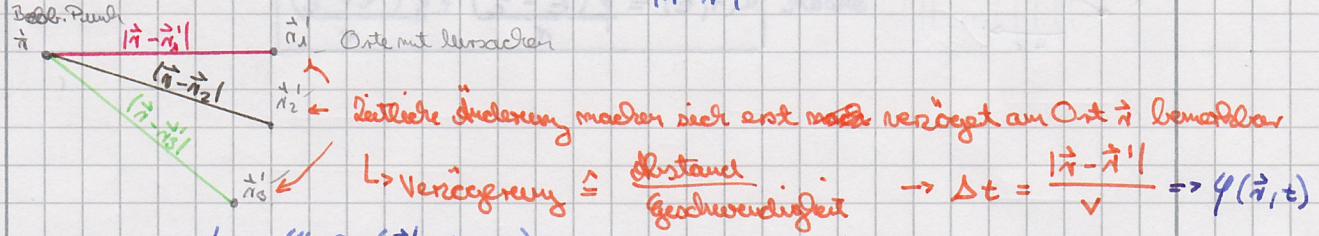 Beob. Punkt
$\vec{r}$ $|\vec{r}-\vec{r}_1'|$ $\vec{r}_1'$ Orte mit Ursachen
$|\vec{r}-\vec{r}_2'|$ $\vec{r}_2'$ ← Zeitliche Änderung machen sich erst verzöget am Ort $\vec{r}$ bemerkbar
$|\vec{r}-\vec{r}_3'|$ $\vec{r}_3'$ ↳ Verzögerung ≙ $\frac{\text{Abstand}}{\text{Geschwindigkeit}}$ → $\Delta t = \frac{|\vec{r}-\vec{r}'|}{v}$ => $\varphi(\vec{r},t)$